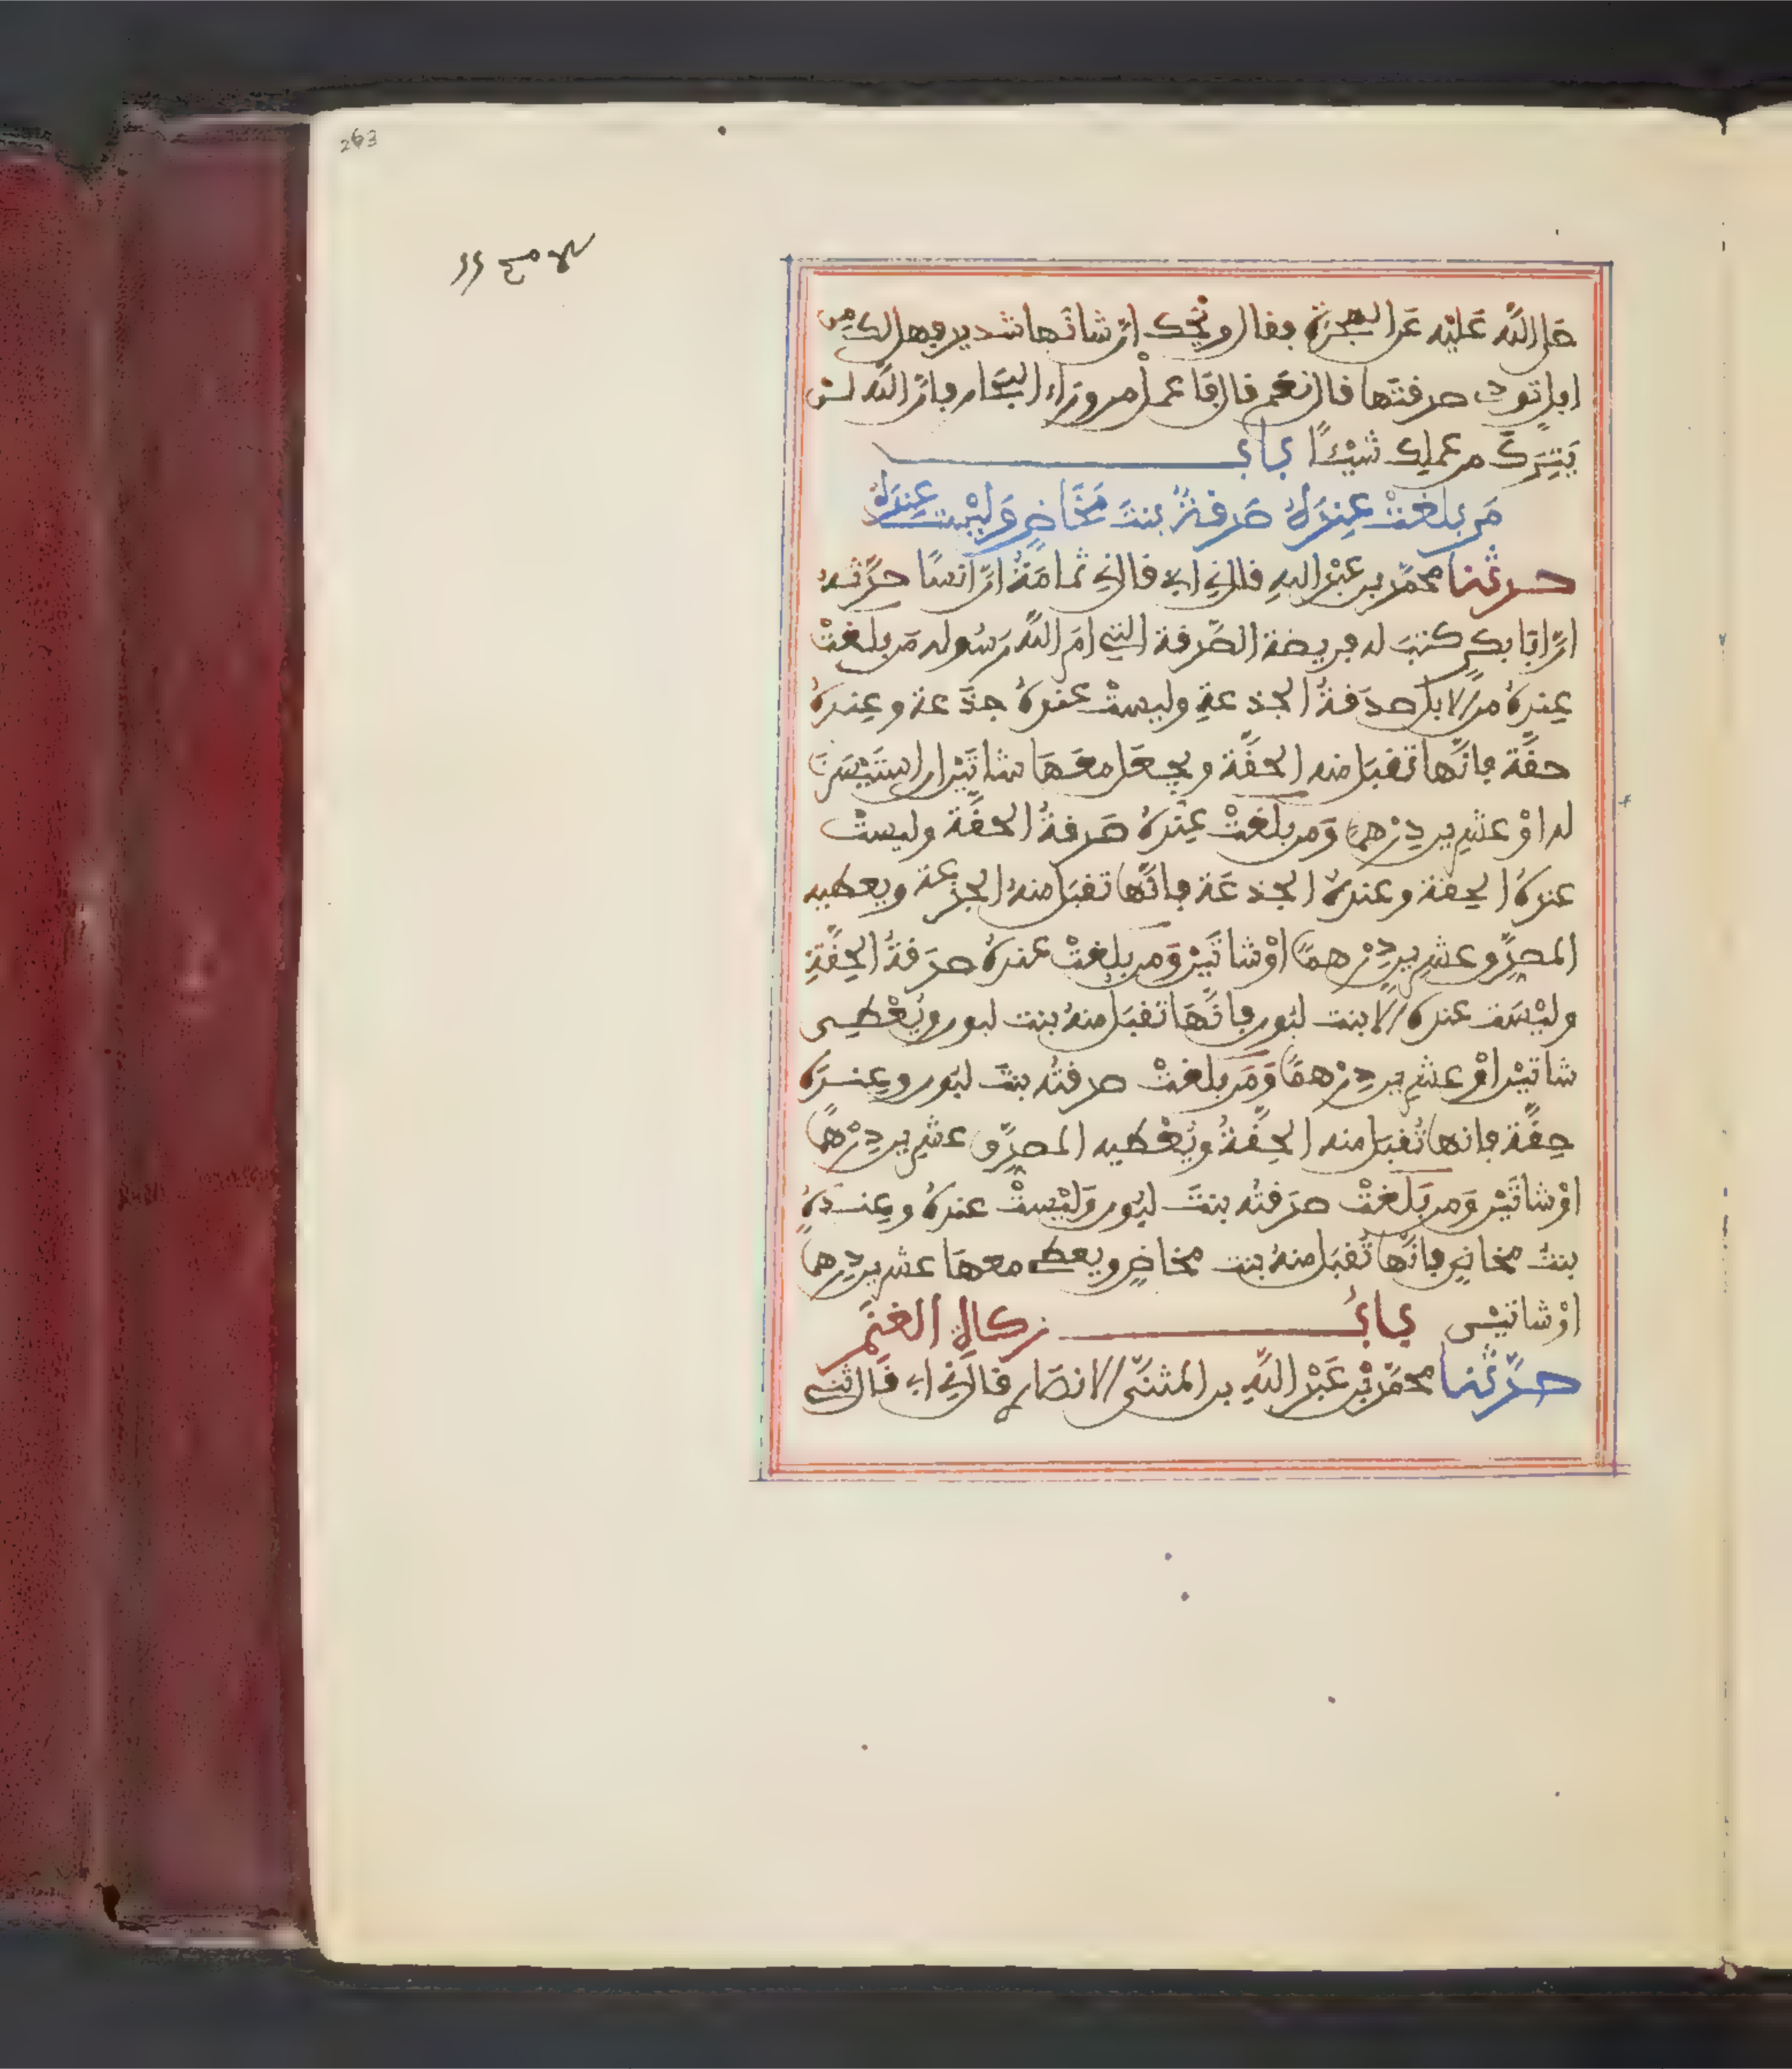 263
صلى الله عليه عن الهجرة فقال ويحك ان شانها شديد فهل لك من
ابل تودي صدقتها قال نعم قال فاعمل من وراء البحار فان الله لن
يترك من عملك شيئا باب
من بلغت عنده صدقة بنت مخاض وليست عنده
حدثنا محمد بن عبد الله قال ني ابي قال ني ثمامة ان انسا حدثه
ان ابا بكر كتب له فريضة الصدقة التي امر الله رسوله من بلغت
عنده من الابل صدقة الجذعة وليست عنده جذعة وعنده
حقة فانها تقبل منه الحقة ويجعل معها شاتين ان استيسرتا
له او عشرين درهما ومن بلغت عنده صدقة الحقة وليست
عنده الحقة وعنده الجذعة فانها تقبل منه الجذعة ويعطيه
المصدق عشرين درهما او شاتين ومن بلغت عنده صدقة الحقة
وليست عنده الا بنت لبون فانها تقبل منه بنت لبون ويعطى
شاتين او عشرين درهما ومن بلغت صدقته بنت لبون وعنده
حقة فانها تقبل منه الحقة ويعطيه المصدق عشرين درهما
او شاتين ومن بلغت صدقته بنت لبون وليست عنده وعنده
بنت مخاض فانها تقبل منه بنت مخاض ويعطى معها عشرين درهما
او شاتين باب زكاة الغنم
حدثنا محمد بن عبد الله بن المثنى الانصاري قال ني ابي قال ثني